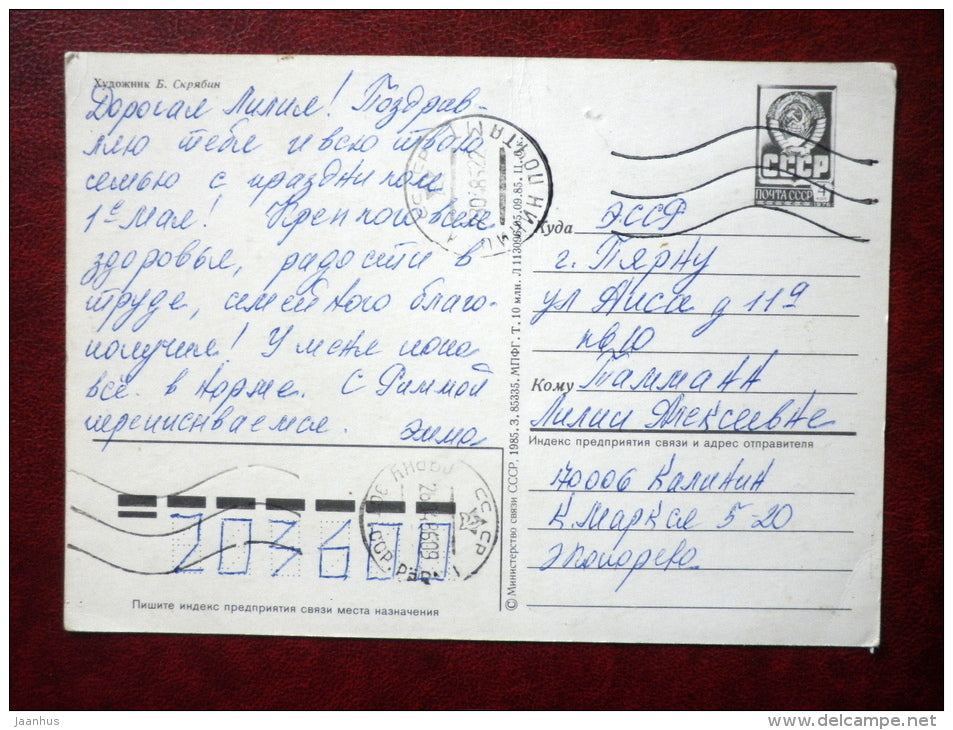 Художник Б. Скрябин
Дорогая Лилия! Поздрав-
ляю тебя и всю твою
семью с праздником
1е Мая! Крепкого всем
здоровья, радости в
труде, семейного благо-
получия! У меня пока
всё в норме. С Риммой
переписываемся. Эмма
СССР
ПОЧТА СССР
4
1976
Куда ЭССР
г. Пярну
ул Аиса д 11а
кв 10
Кому Тамманн
Лилии Алексеевне
Индекс предприятия связи и адрес отправителя
170006 Калинин
К. Маркса 5-20
203600
Пишите индекс предприятия связи места назначения
© Министерство связи СССР, 1985. З. 85335. МПФГ. Т. 10 млн.
jaanhus
www.delcampe.net